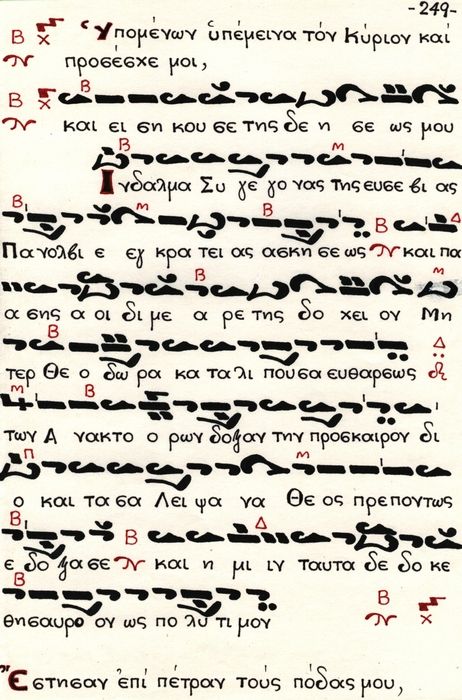 -249-
Ὑπομένων ὑπέμεινα τόν Κύριον καί
προσέσχε μοι,
και ει ση κου σε της δε η σε ως μου
Ινδαλμα Συ γε γο νας της ευσε βι ας
Πανολβι ε εγ κρα τει ας ασκη σε ως και πα
α σης α οι δι με α ρε της δο χει ον Μη
τερ Θε ο δω ρα κα τα λι πουσα ευθαρσως
των Α νακτο ο ρων δοξαν την προσκαιρον δι
ο και τα σα λειψα να Θε ος πρεποντως
ε δο ξα σε και η μι ιν ταυτα δε δο κε
θησαυρο ον ως πο λυ τι μον
Ἔστησαν ἐπί πέτραν τούς πόδας μου,